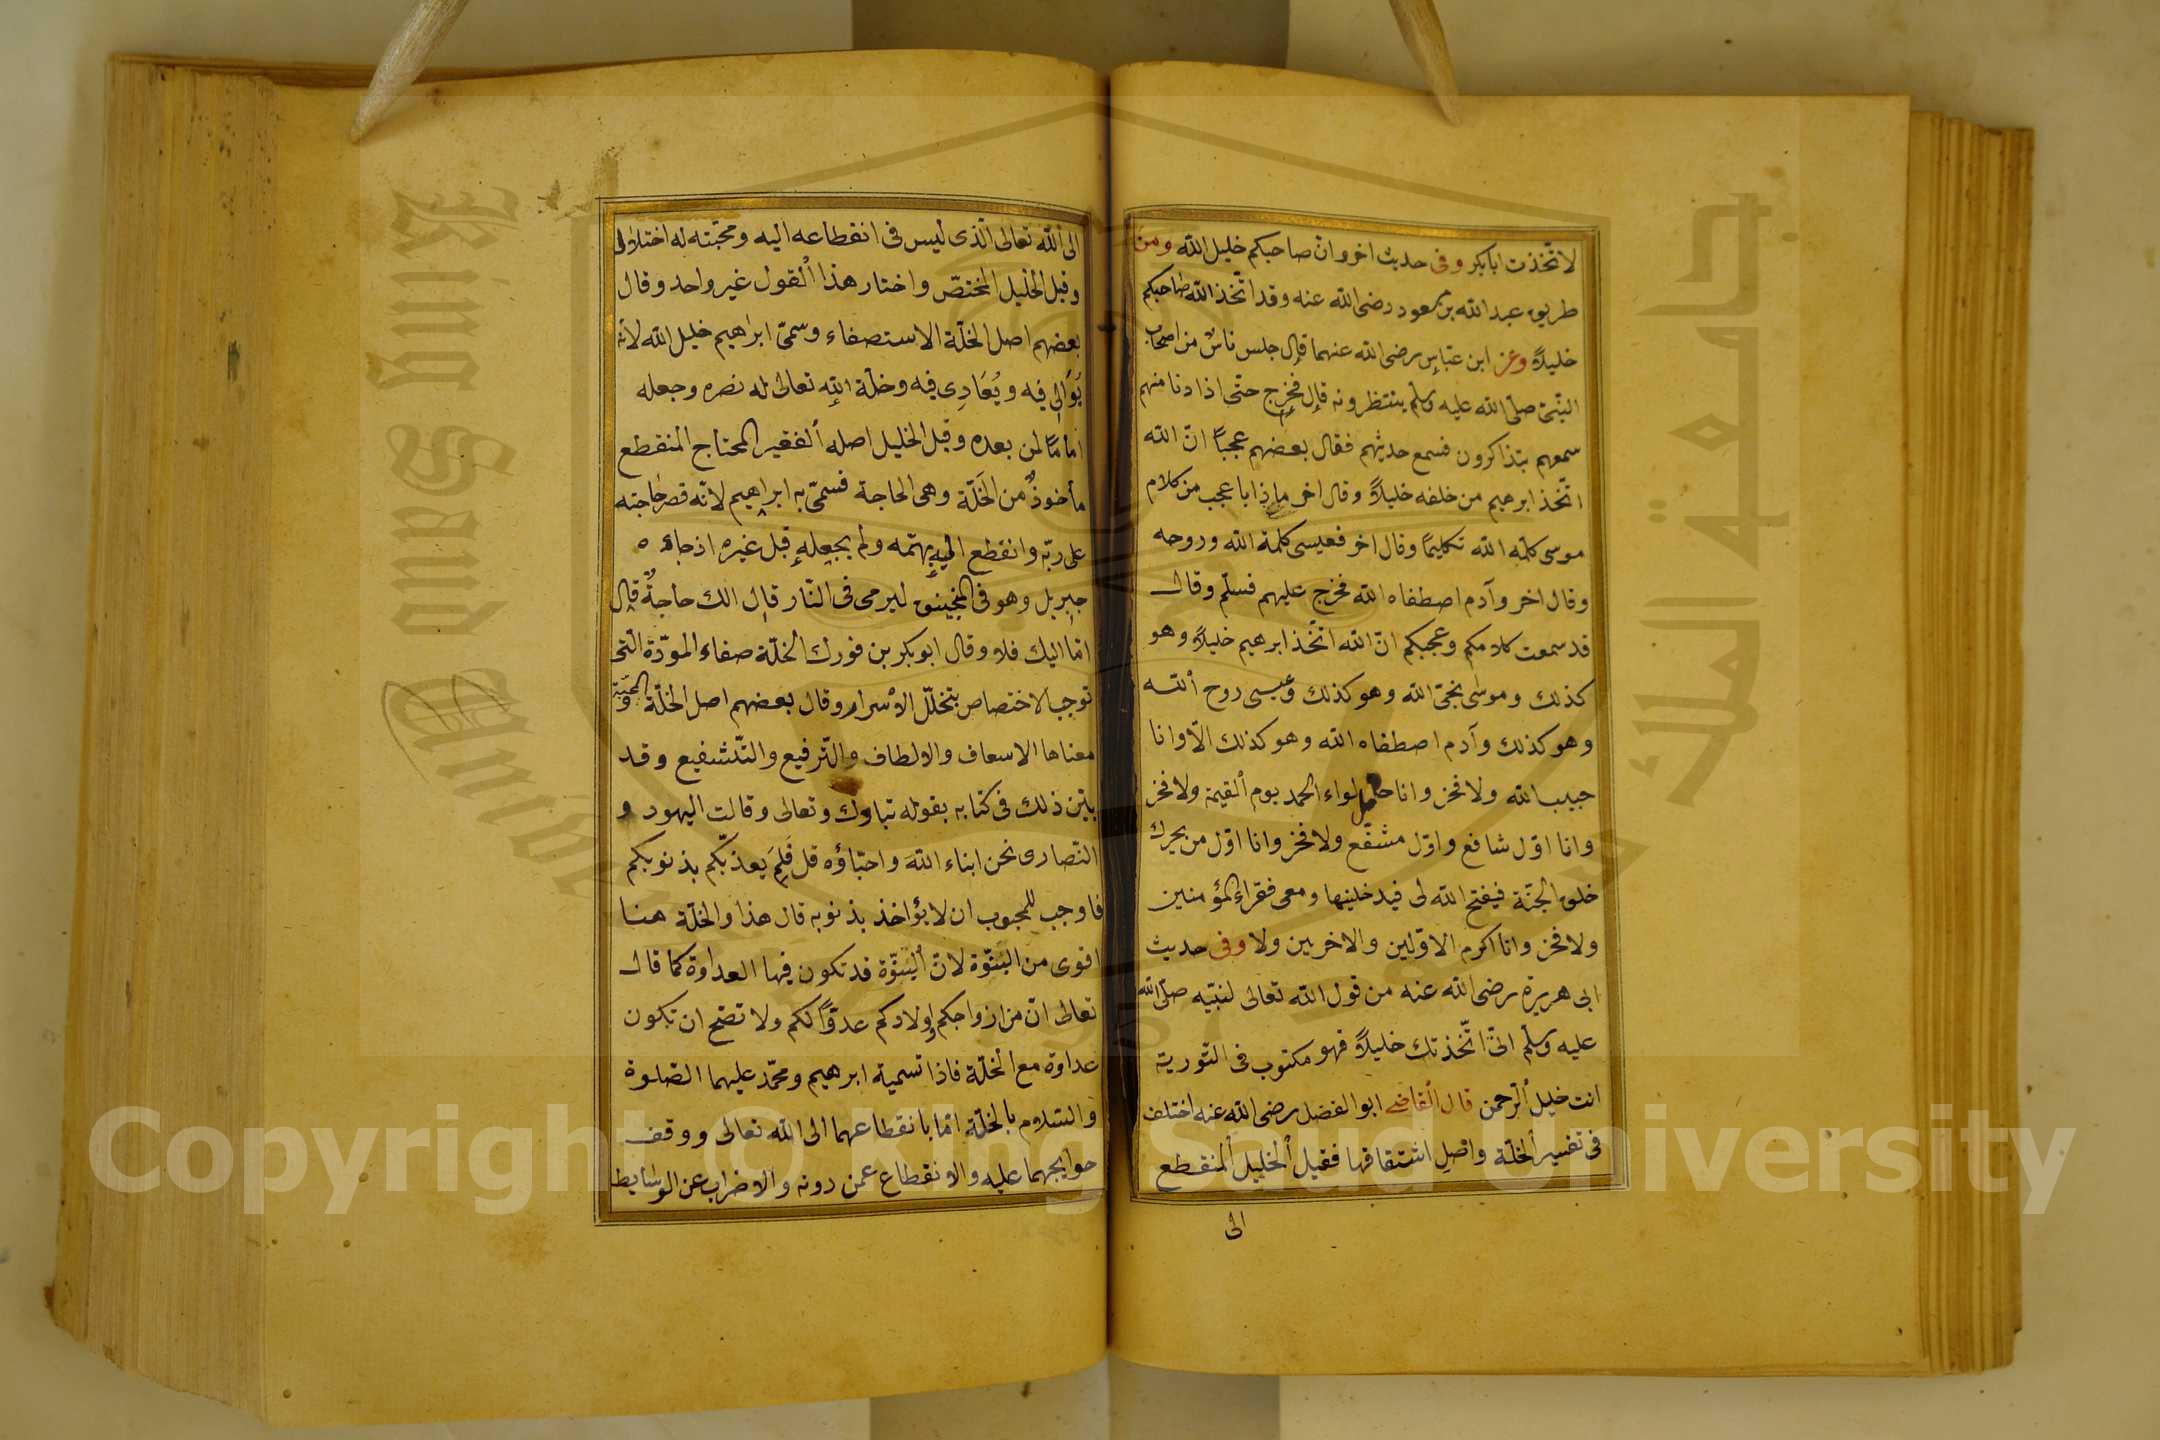 لاتّخذت ابابكر وفى حديث اخر وان صاحبكم خليل الله ومن
طريق عبد الله بن مسعود رضى الله عنه وقد اتّخذ الله صاحبكم
خليلاً وعن ابن عبّاس رضى الله عنهما قال جلس ناسٌ من اصحاب
النّبىّ صلّى الله عليه وسلّم ينتظرونه قال فخرج حتّى اذا دنا منهم
سمعهم يتذاكرون فسمع حديثهم فقال بعضهم عجباً انّ الله
اتّخذ ابرهيم من خلقه خليلاً وقال اخر ماذا باعجب من كلام
موسى كلّمه الله تكليمًا وقال اخر فعيسى كلمة الله وروحه
وقال اخر وآدم اصطفاه الله فخرج عليهم فسلّم وقال
قد سمعت كلامكم وعجبكم انّ الله اتّخذ ابرهيم خليلاً وهو
كذلك وموسى نجىّ الله وهو كذلك وعيسى روح الله
وهو كذلك وآدم اصطفاه الله وهو كذلك الّا وانا
حبيب الله ولا فخر وانا حامل لواء الحمد يوم القيمة ولا فخر
وانا اوّل شافع واوّل مشفّع ولا فخر وانا اوّل من يحرك
حلق الجنّة فيفتح الله لى فيدخلنيها ومعى فقراء المؤمنين
ولا فخر وانا اكرم الاوّلين والاخرين ولا وفى حديث
ابى هريرة رضى الله عنه من قول الله تعالى لنبيّه صلّى الله
عليه وسلّم انىّ اتّخذتك خليلاً فهو مكتوب فى التّورية
انت خليل الرّحمن قال القاضى ابو الفضل رضى الله عنه اختلف
فى تفسير الخلّة واصل اشتقاقها فقيل الخليل المنقطع
الى
الى الله تعالى الّذى ليس فى انقطاعه اليه ومحبّته له اختلال
وقيل الخليل المختصّ واختار هذا القول غير واحد وقال
بعضهم اصل الخلّة الاستصفاء وسمّى ابراهيم خليل الله لانّه
يُوَالِى فيه ويُعَادِى فيه وخلّة الله تعالى له نصره وجعله
اماماً لمن بعده وقيل الخليل اصله الفقير المحتاج المنقطع
مأخوذٌ من الخَلّة وهى الحاجة فسمّى به ابراهيم لانّه قصر حاجته
على ربّه وانقطع اليه بهمّه ولم يجعله قبل غيره اذ جاءه
جبريل وهو فى المنجنيق ليرمى فى النّار قال الك حاجةٌ قال
امّا اليك فلا وقال ابوبكر بن فورك الخلّة صفاء المودّة الّتى
توجب الاختصاص بتخلّل الأسرار وقال بعضهم اصل الخلّة المحبّة و
معناها الاسعاف والالطاف والتّرفيع والتّشفيع وقد
بيّن ذلك فى كتابه بقوله تبارك وتعالى وقالت اليهود و
النّصارى نحن ابناء الله واحبّاؤه قل فَلِمَ يعذّبكم بذنوبكم
فاوجب للمحبوب ان لا يؤاخذ بذنوبه قال هذا والخلّة هنا
اقوى من البنوّة لانّ البنوّة قد تكون فيها العداوة كما قال
تعالى انّ من ازواجكم واولادكم عدوًّا لكم ولا تصّح ان تكون
عداوة مع الخلّة فاذا تسمية ابرهيم ومحمّد عليهما الصّلوة
والسّلام بالخلّة امّا بانقطاعهما الى الله تعالى ووقف
حوايجهما عليه والانقطاع عمن دونه والاضراب عن الوسايط
Copyright © King Saud University
King Saud University
جامعة الملك سعود